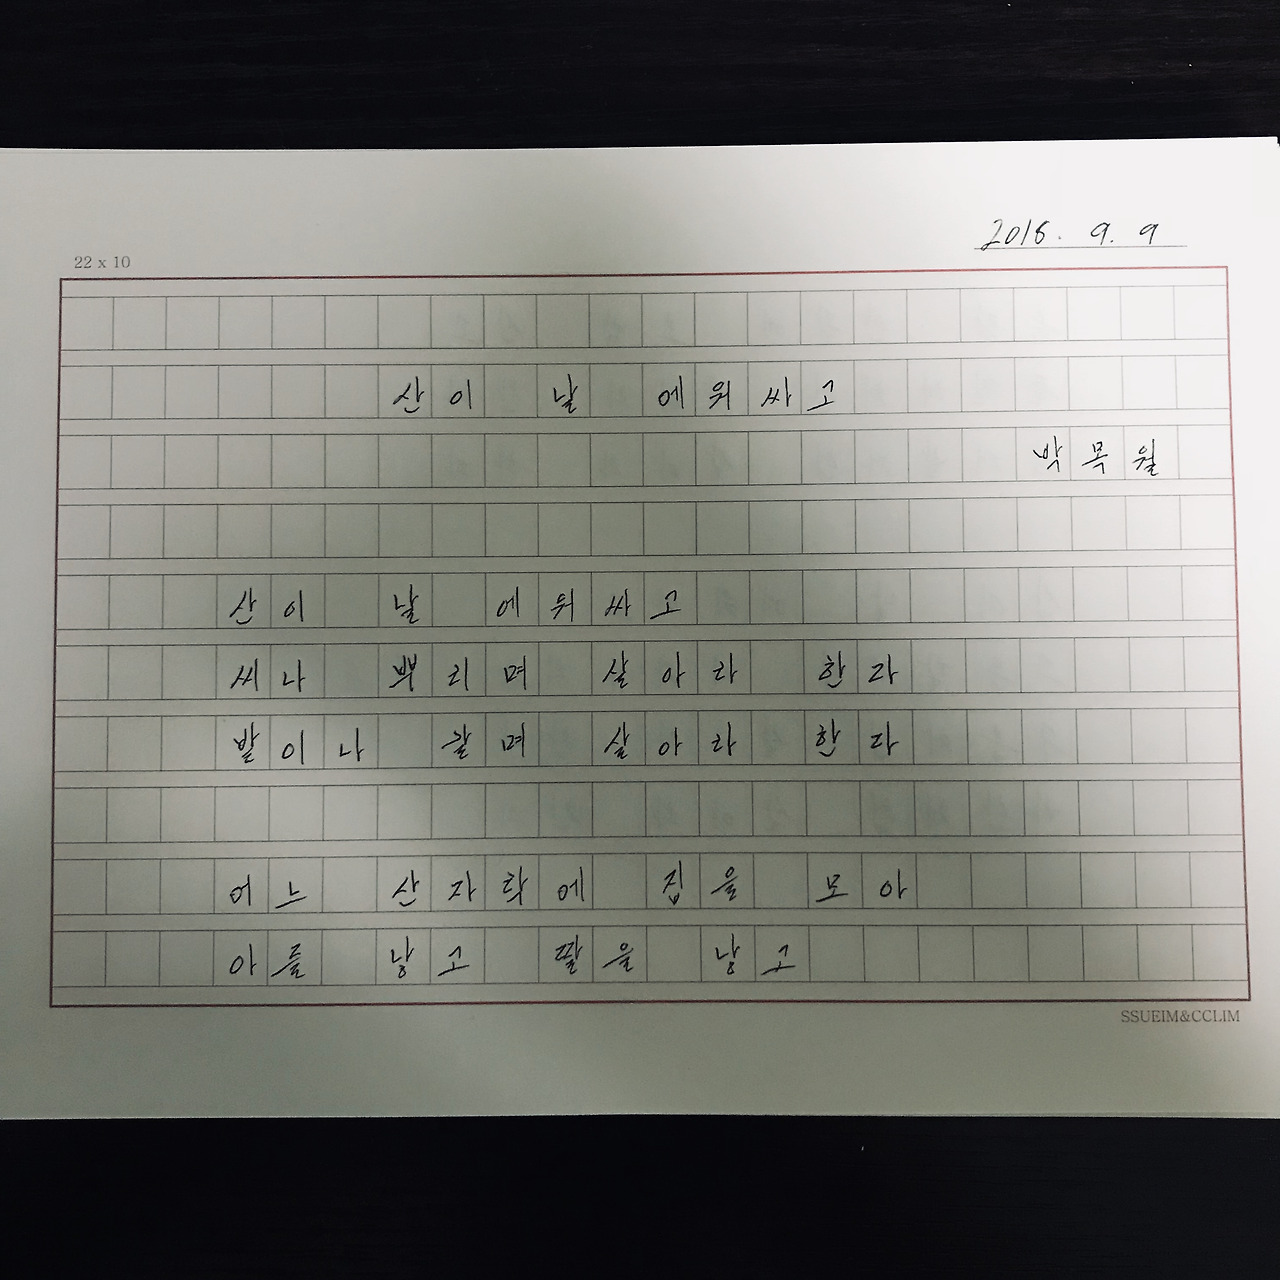 2016. 9. 9
22 x 10
산이 날 에워싸고
박목월
산이 날 에워싸고
씨나 뿌리며 살아라 한다
밭이나 갈며 살아라 한다
어느 산자락에 집을 모아
아들 낳고 딸을 낳고
SSUEIM&CCLIM